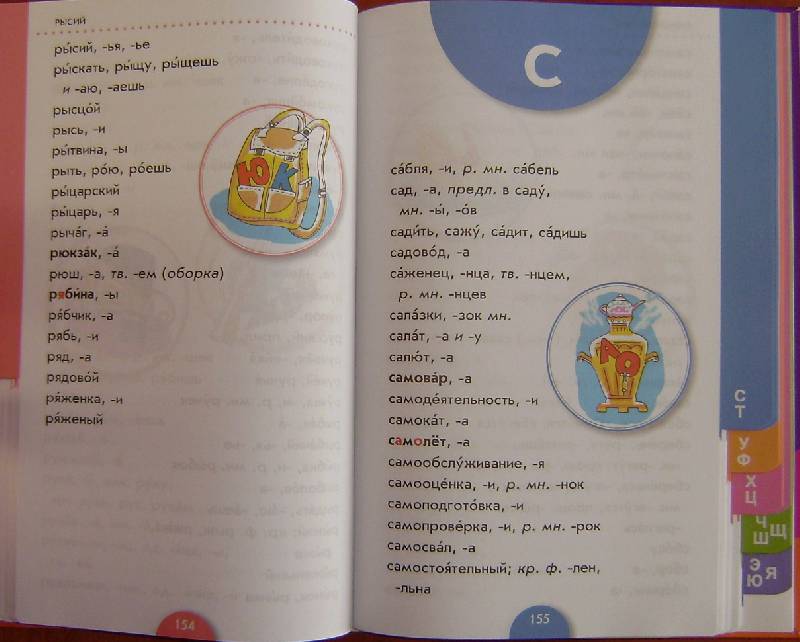 РЫСИЙ
ры́сий, -ья, -ье
ры́скать, ры́щу, ры́щешь
и -аю, -аешь
рысцо́й
рысь, -и
ры́твина, -ы
рыть, ро́ю, ро́ешь
ры́царский
ры́царь, -я
рыча́г, -а́
рюкза́к, -а́
рюш, -а, тв. -ем (оборка)
ряби́на, -ы
ря́бчик, -а
рябь, -и
ряд, -а
рядово́й
ря́женка, -и
ря́женый
Ю К
154
С
са́бля, -и, р. мн. са́бель
сад, -а, предл. в саду́,
мн. -ы́, -о́в
сади́ть, сажу́, са́дит, са́дишь
садово́д, -а
са́женец, -нца, тв. -нцем,
р. мн. -нцев
сала́зки, -зок мн.
сала́т, -а и -у
салю́т, -а
самова́р, -а
самоде́ятельность, -и
самока́т, -а
самолёт, -а
самообслу́живание, -я
самооце́нка, -и, р. мн. -нок
самоподгото́вка, -и
самопрове́рка, -и, р. мн. -рок
самосва́л, -а
самостоя́тельный; кр. ф. -лен,
-льна
А О
155
С
Т
У
Ф
Х
Ц
Ч
Щ
Ш
Э
Я
Ю